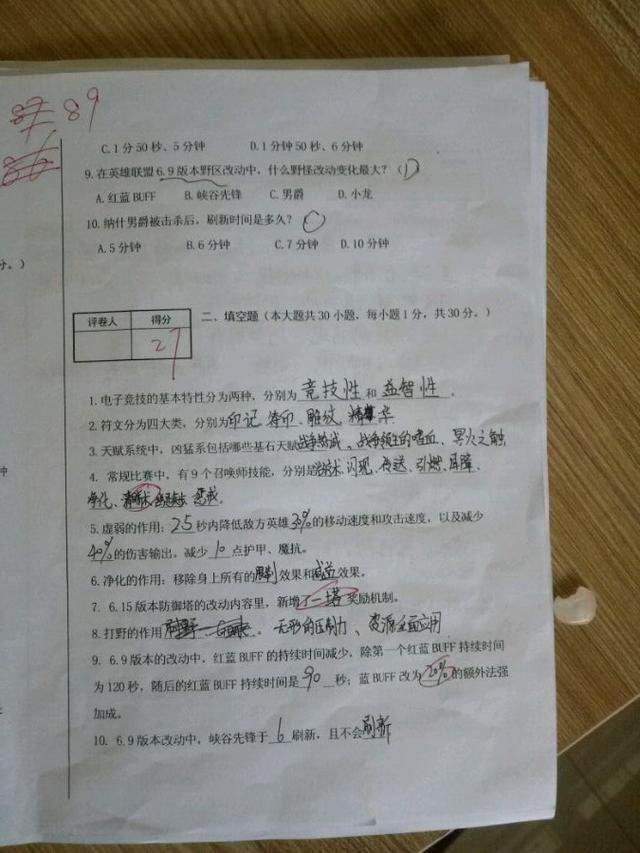 87 89
C.1分50秒、5分钟 D.1分钟50秒、6分钟
9.在英雄联盟6.9版本野区改动中，什么野怪改动变化最大？（D）
A.红蓝BUFF B.峡谷先锋 C.男爵 D.小龙
10.纳什男爵被击杀后，刷新时间是多久？（）
A.5分钟 B.6分钟 C.7分钟 D.10分钟
分。）
评卷人 得分
27
二、填空题（本大题共30小题，每小题1分，共30分。）
1.电子竞技的基本特性分为两种，分别为竞技性和益智性。
2.符文分为四大类，分别为印记、符印、雕纹、精华
3.天赋系统中，凶猛系包括哪些基石天赋战争热诚、战争领主的嗜血、死火之触
4. 常规比赛中，有9个召唤师技能，分别是治疗术、闪现、传送、引燃、屏障、
钟
净化、惩戒
5.虚弱的作用：2.5秒内降低敌方英雄30%的移动速度和攻击速度，以及减少
40%的伤害输出。减少10点护甲、魔抗。
6.净化的作用：移除身上所有的限制效果和减益效果。
7. 6.15版本防御塔的改动内容里，新增了一塔奖励机制。
8.打野的作用 。无形的压制力、资源全面应用
9. 6.9版本的改动中，红蓝BUFF的持续时间减少，除第一个红蓝BUFF持续时间
为120秒，随后的红蓝BUFF持续时间是90秒；蓝BUFF改为20%的额外法强
加成。
10. 6.9版本改动中，峡谷先锋于6刷新，且不会刷新